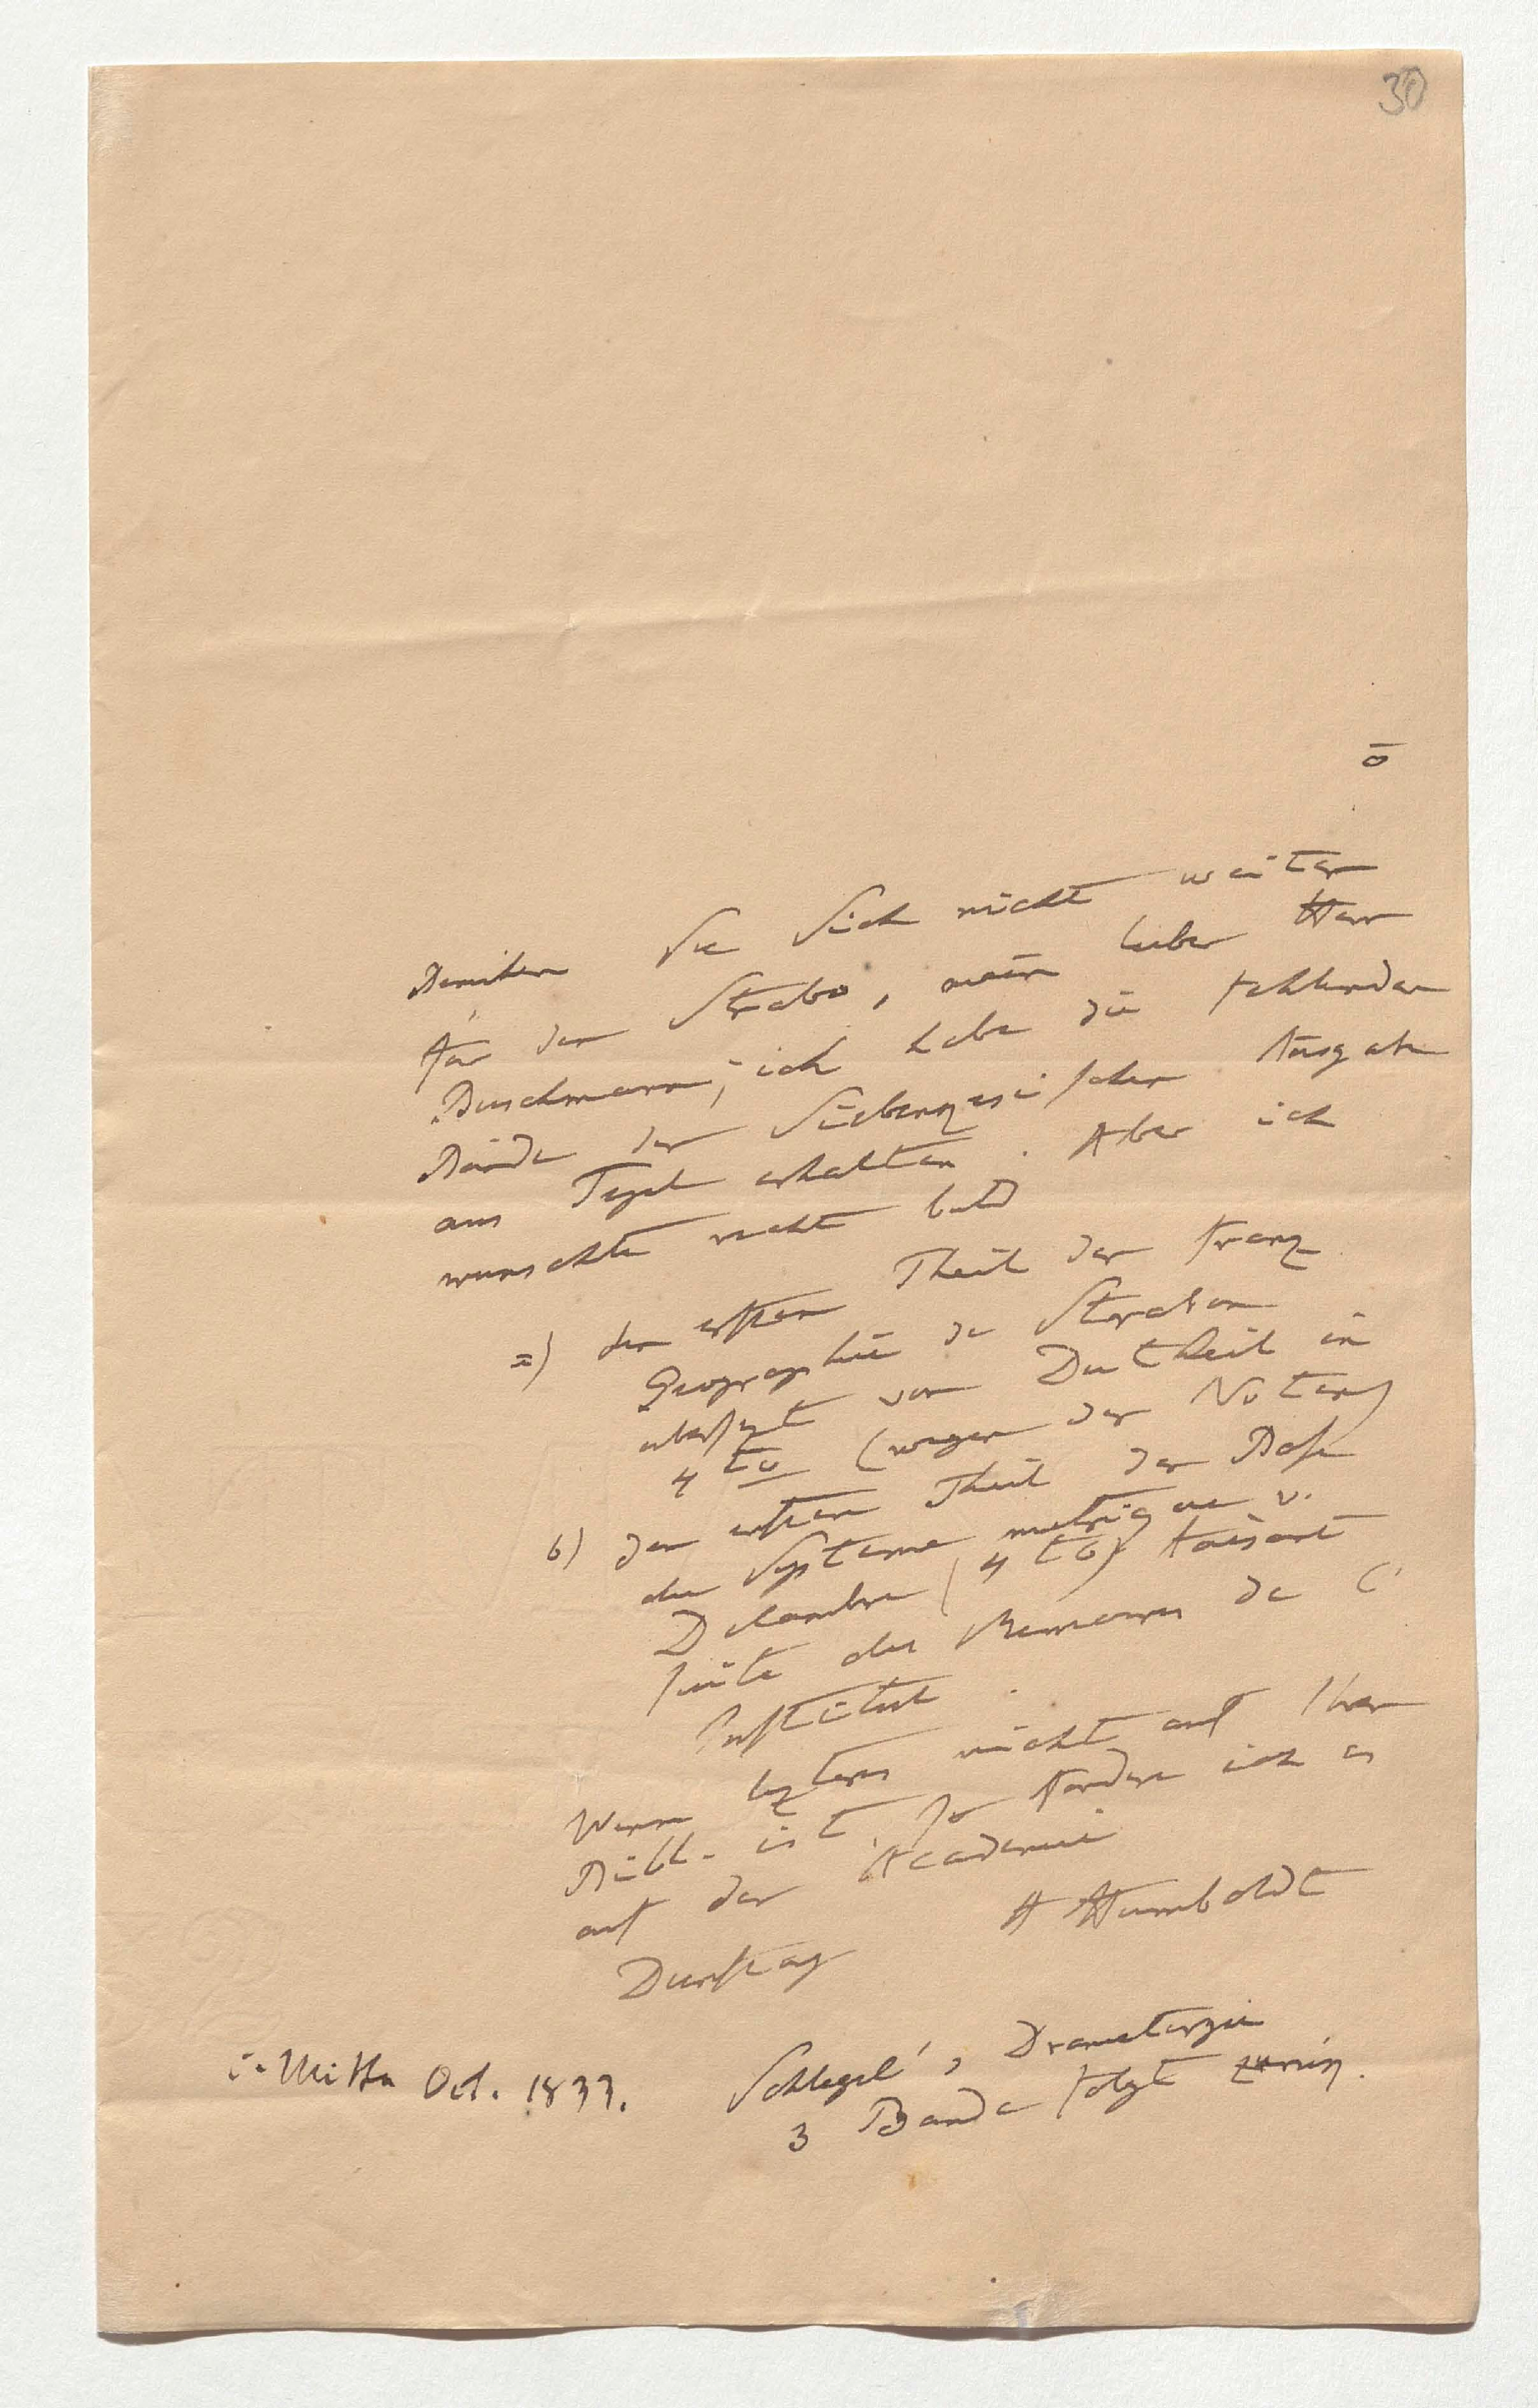 30
ō
Bemühen Sie Sich nicht weiter
für den Strabo, mein lieber Herr
Buschmann; ich habe die fehlenden
Bände der Siebenzeischen Ausgabe
aus Tegel erhalten. Aber ich
wünschte recht bald
a) den ersten Theil der franz
Geographie de Strabon
übersezt von Du Theil in
4to (wegen der Noten)
b) den ersten Theil der Base
du Systeme metrique v.
Delambre (4to) faisant
suite des Memoires de l'
Institut.
Wenn lezteres nicht auf Ihrer
Bibl. ist, so fordere ich es
auf der Academie
A Humboldt
Dienstag
Schlegel's Dramaturgie
3 Bände folgt zurük.
i. Mitte Oct. 1833.